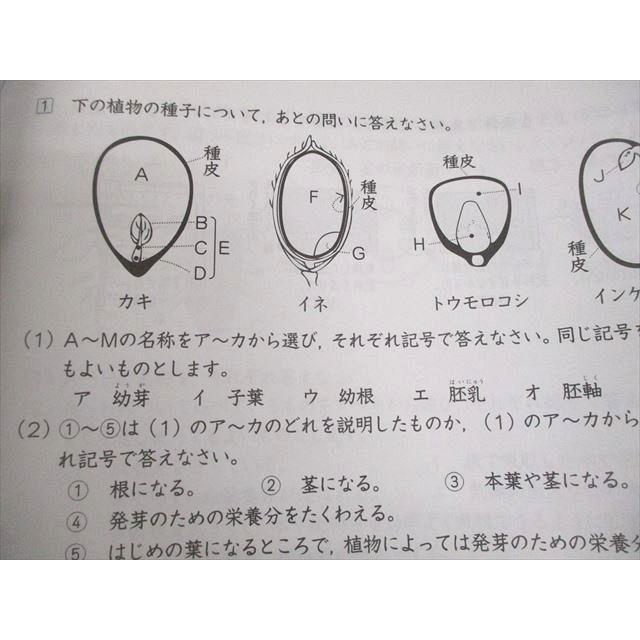 1 下の植物の種子について，あとの問いに答えなさい。
A 種皮 B C D E カキ
F 種皮 G イネ
種皮 I H トウモロコシ
J K 種皮 インゲ
(1) A～Mの名称をア～カから選び，それぞれ記号で答えなさい。同じ記号を
もよいものとします。
ようが はいにゅう しく
ア 幼芽 イ 子葉 ウ 幼根 エ 胚乳 オ 胚軸
(2) ①～⑤は（1）のア～カのどれを説明したものか，（1）のア～カから
れ記号で答えなさい。
① 根になる。 ② 茎になる。 ③ 本葉や茎になる。
④ 発芽のための栄養分をたくわえる。
⑤ はじめの葉になるところで，植物によっては発芽のための栄養分